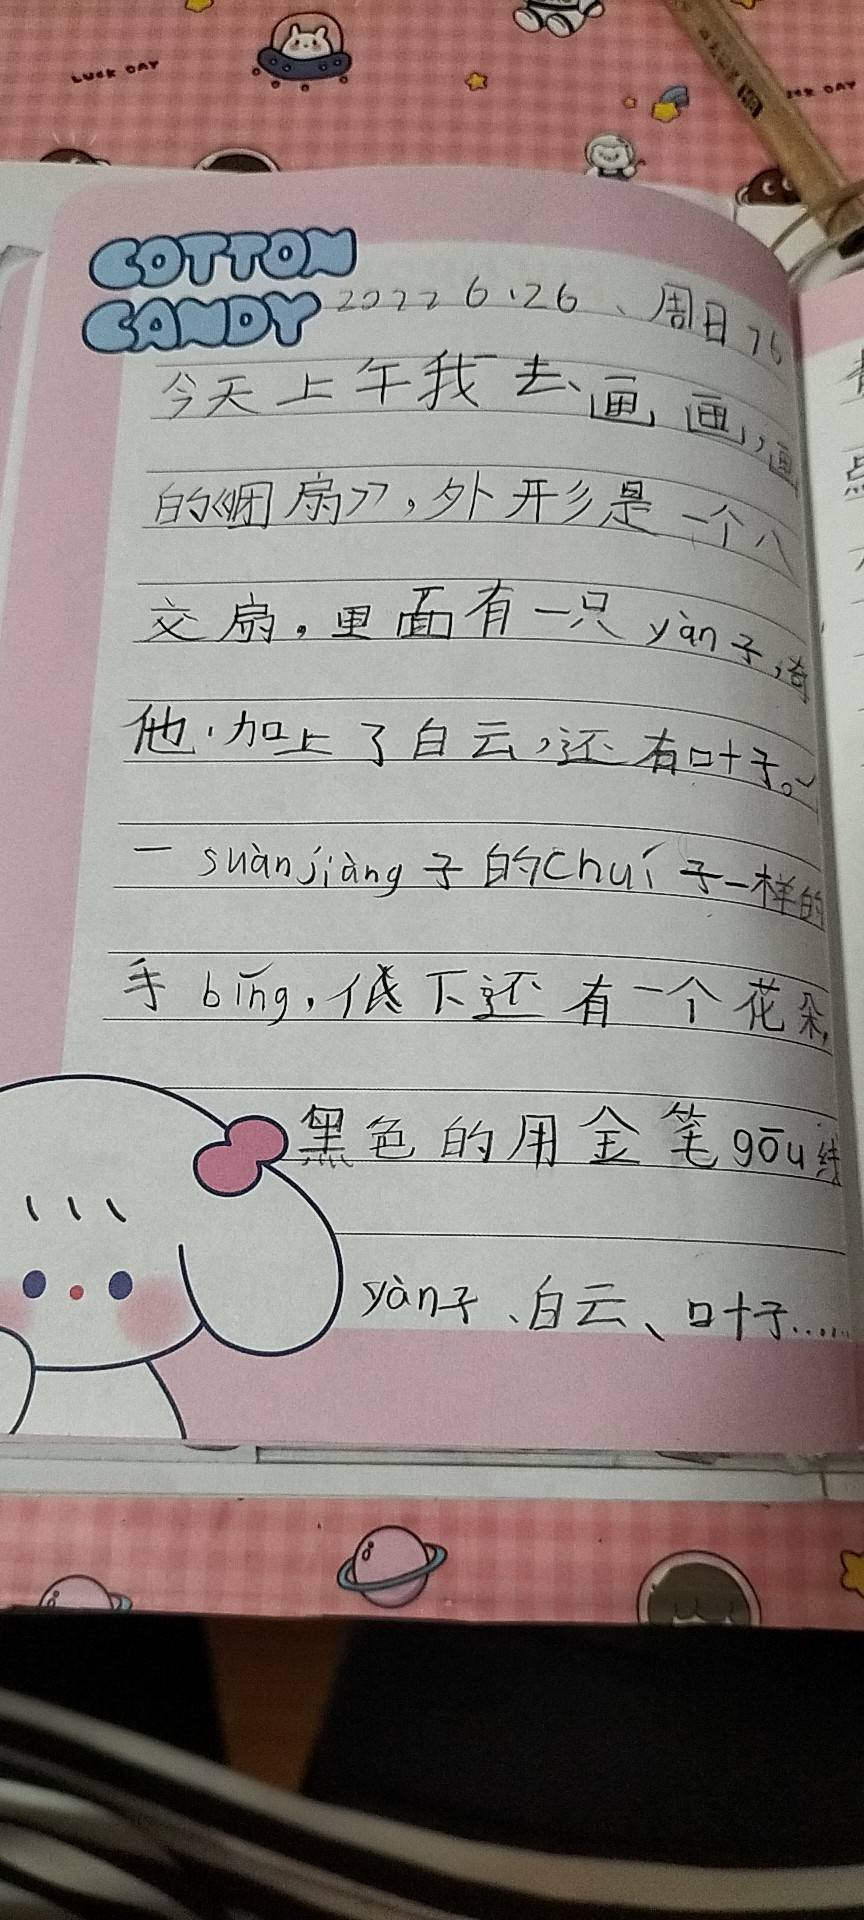 LUCK DAY
LUCK DAY
COTTON
CANDY
2022 6.26、周日 76
今天上午我去画画,画
的《团扇》,外形是一个八
交扇。里面有一只yàn子,奇
他.加上了白云,还有叶子。
一suànjiàng子的chuí子一样的
手bīng,低下还有一个花朵,
黑色的用金笔gōu线
yàn子、白云、叶子......